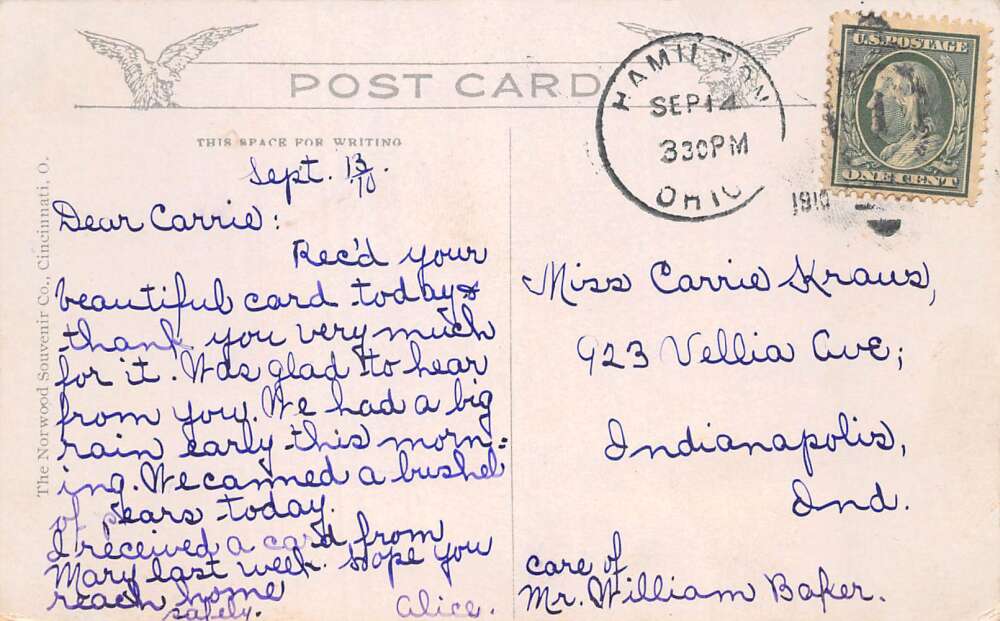 POST CARD
THIS SPACE FOR WRITING
The Norwood Souvenir Co., Cincinnati, O.
HAMILTON
SEP 14
330PM
OHIO
1910
U.S. POSTAGE
ONE CENT
Sept. 13/10.
Dear Carrie:
Rec'd your
beautiful card today &
thank you very much
for it. Was glad to hear
from you. We had a big
rain early this morn=
ing. We canned a bushel
of pears today.
I received a card from
Mary last week. Hope you
reach home
safely. Alice.
Miss Carrie Kraus,
923 Vellia Ave;
Indianapolis,
Ind.
care of
Mr. William Baker.